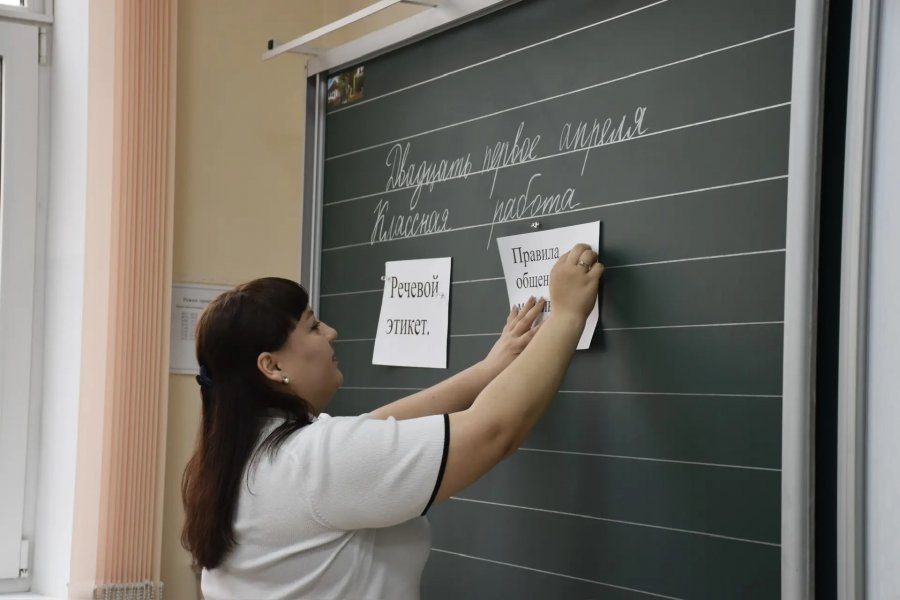 Двадцать первое апреля
Классная работа
Речевой
этикет.
Правила